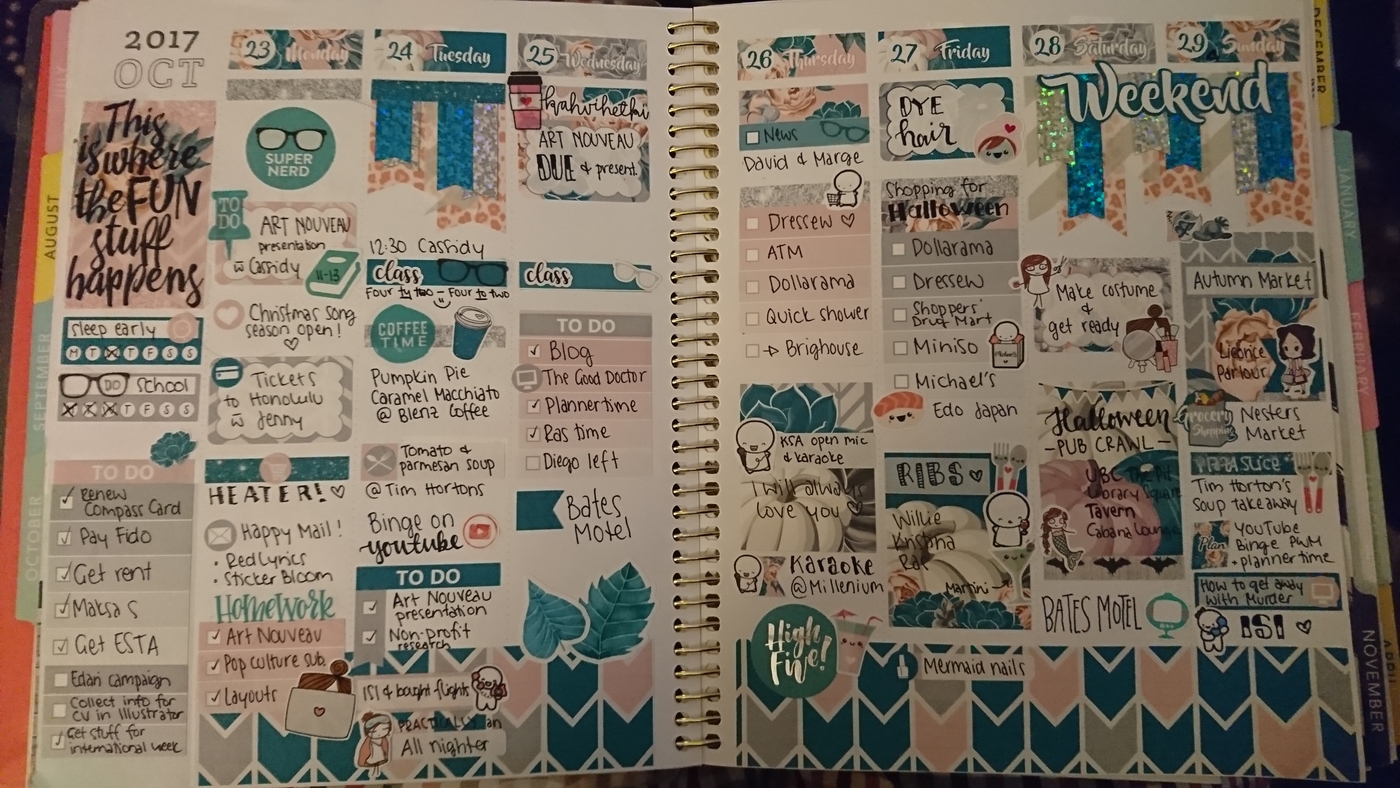 2017
OCT
This
is where
the FUN
stuff
happens
sleep early
M T X T F S S
DO school
X X X T F S S
TO DO
Renew
Compass Card
Pay Fido
Get rent
Maksa S
Get ESTA
Edari campaign
Collect info for
CV in Illustrator
Get stuff for
international week
23 Monday
SUPER
NERD
TO
DO
ART NOUVEAU
presentation
w̄ Cassidy
11-13
Christmas song
season open!
Tickets
to Honolulu
w̄ Jenny
HEATER!
Happy Mail!
• RedLyrics
• Sticker Bloom
HOMEWORK
Art Nouveau
Pop culture sub.
Layouts
24 Tuesday
12:30 Cassidy
class
Four ty two - Four to two
COFFEE
TIME
Pumpkin Pie
Caramel Macchiato
@ Blenz Coffee
Tomato &
parmesan soup
@ Tim Hortons
Binge on
youtube
TO DO
Art Nouveau
presentation
Non-profit
research
ISI & bought flights
PRACTICALLY an
All nighter
25 Wednesday
kahvihetki
ART NOUVEAU
DUE & present.
class
TO DO
Blog
The Good Doctor
Plannertime
Ras time
Diego left
Bates
Motel
26 Thursday
News
David & Marge
Dressew
ATM
Dollarama
Quick shower
→ Brighouse
KSA open mic
& karaoke
I will always
love you
Karaoke
@Millenium
High
Five!
27 Friday
DYE
hair
Shopping for
Halloween
Dollarama
Dressew
Shoppers'
Drug Mart
Miniso
Michael's
Edo Japan
RIBS
Willie
Kristina
Martini
Mermaid nails
28 Saturday
Weekend
Make costume
&
get ready
Halloween
- PUB CRAWL -
Library Square
Tavern
Cabana Lounge
BATES MOTEL
29 Sunday
Autumn Market
Licorice
Parlour
Grocery
Shopping
Nesters
Market
Pizza slice
Tim Horton's
soup takeaway
Plan
YouTube
Binge PWM
+ plannertime
How to get away
with Murder
ISI
AUGUST
SEPTEMBER
OCTOBER
DECEMBER
JANUARY
FEBRUARY
APRIL
NOVEMBER